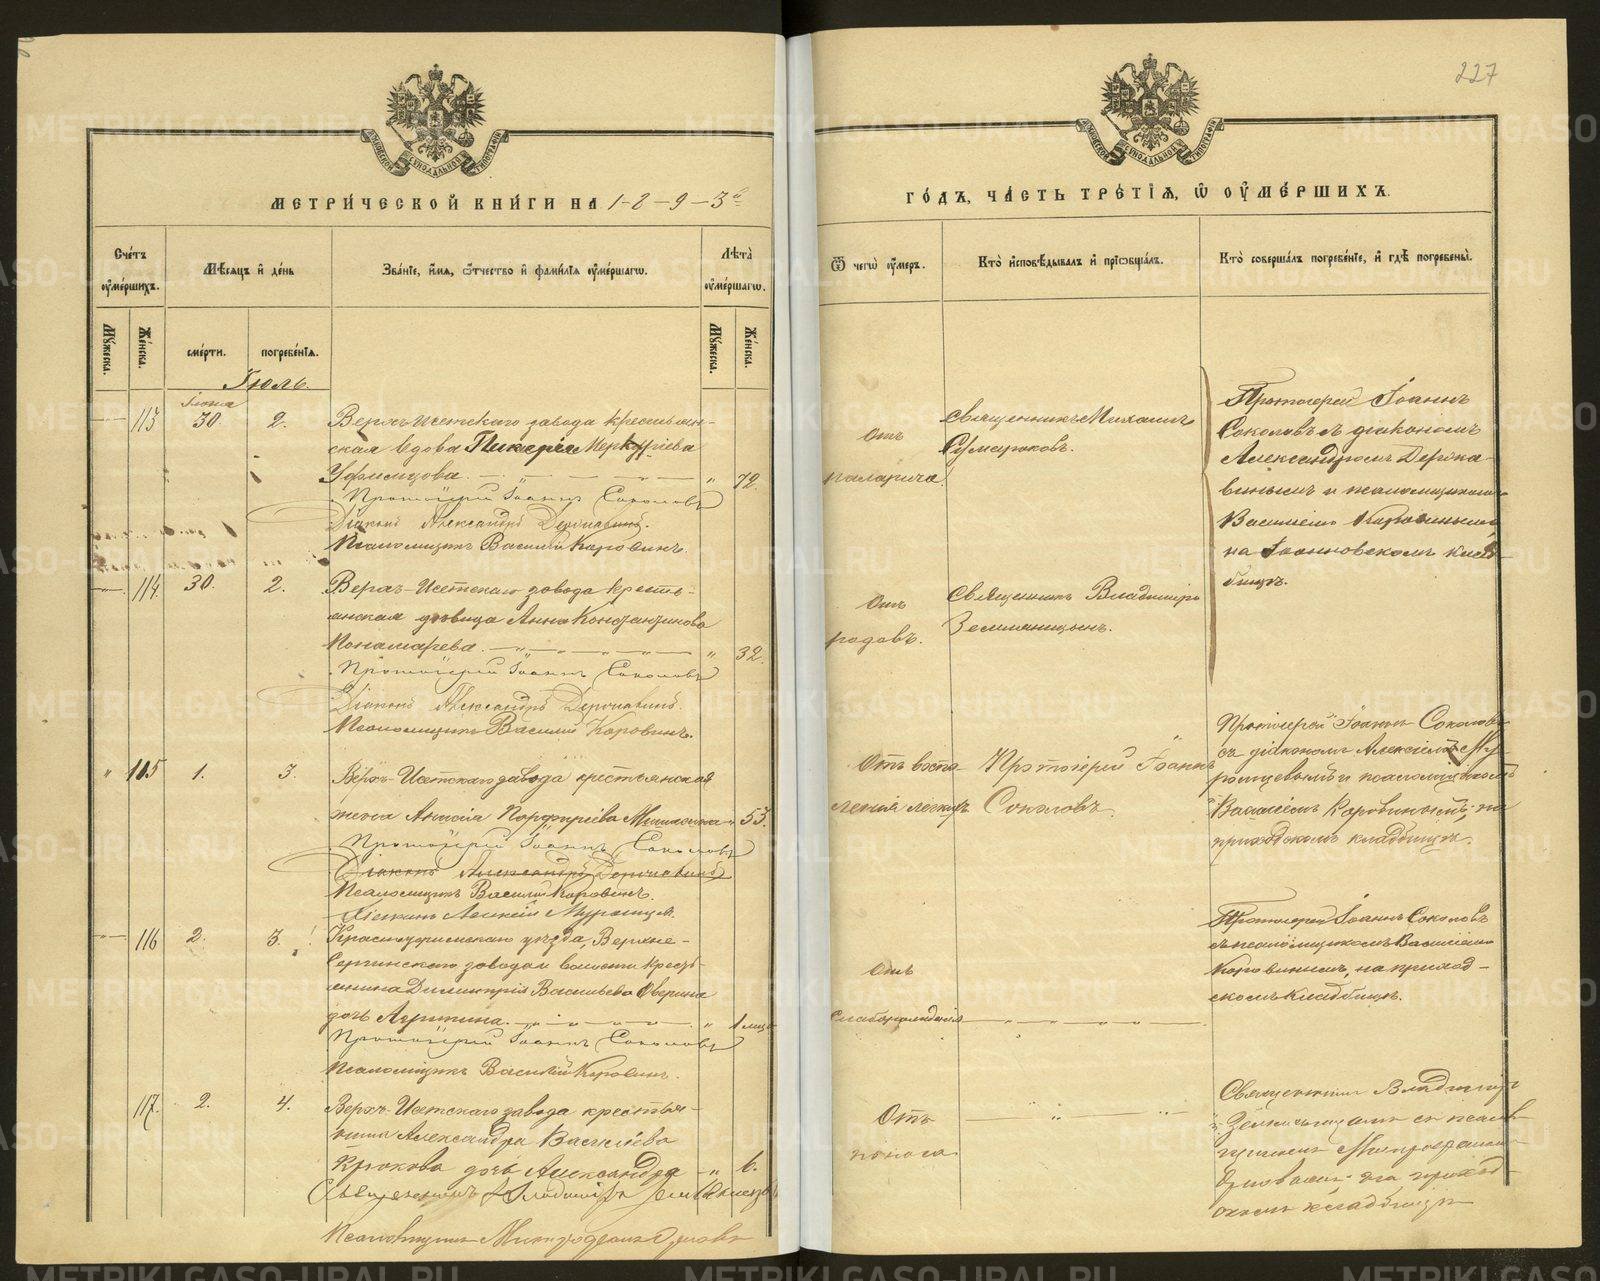 227
МОСКОВСКОЙ СѴНОДАЛЬНОЙ ТИПОГРАФІИ
МОСКОВСКОЙ СѴНОДАЛЬНОЙ ТИПОГРАФІИ
МЕТРИ́ЧЕСКОЙ КНИ́ГИ НА 1-8-9-3й
ГО́ДЪ, ЧА́СТЬ ТРЕ́ТІѦ, Ѿ ОУ҆МЕ́РШИХЪ.
Сче́тъ оу҆ме́ршихъ.
Мѣ́сѧцъ и҆ де́нь
Зва́ніе, и҆́мѧ, ѻ҆́тчество и҆ фами́лїѧ оу҆ме́ршагѡ.
Лѣ́та оу҆ме́ршагѡ.
Ѿ чегѡ̀ оу҆́меръ.
Кто̀ и҆сповѣ́дывалъ и҆ прїѡбща́лъ.
Кто̀ соверша́лъ погребе́нїе, и҆ гдѣ̀ погребены̀.
Мꙋ́жеска.
Же́нска.
сме́рти.
погребе́нїѧ.
Мꙋ́жеска.
Же́нска.
Іюль.
Іюня
113 30. 2. Верхъ-Исетскаго завода крестьян-
ская вдова Гликерія Меркуріева
Уфимцова. 72.
Протоіерей Іоаннъ Соколовъ
Діаконъ Александръ Державинъ.
Псаломщикъ Василій Коровинъ.
Отъ
паралича.
Священникъ Михаилъ
Сумароковъ.
Протоіерей Іоаннъ
Соколовъ съ діакономъ
Александромъ Держа-
винымъ и псаломщикомъ
Василіемъ Коровинымъ
на Іоанновскомъ клад-
бищѣ.
114. 30. 2. Верхъ-Исетскаго завода кресть-
янская дѣвица Анна Константинова
Пономарева. 32.
Протоіерей Іоаннъ Соколовъ
Діаконъ Александръ Державинъ.
Псаломщикъ Василій Коровинъ.
Отъ
родовъ.
Священникъ Владиміръ
Земляницынъ.
115 1. 3. Верхъ-Исетскаго завода крестьянская
жена Анисія Порфиріева 53.
Протоіерей Іоаннъ Соколовъ
Діаконъ Александръ Державинъ
Псаломщикъ Василій Коровинъ.
Діаконъ Алексій Муромцевъ.
Отъ воспа-
ленія легкихъ
Протоіерей Іоаннъ
Соколовъ.
Протоіерей Іоаннъ Соколовъ
съ діакономъ Алексіемъ Му-
ромцевымъ и псаломщикомъ
Василіемъ Коровинымъ, на
приходскомъ кладбищѣ.
116 2. 3. Красноуфимскаго уѣзда, Верхне-
Сергинскаго заводая волости кресть-
янина Димитрія Васильева Оверина
дочь Агрипина. 1 мѣс.
Протоіерей Іоаннъ Соколовъ
Псаломщикъ Василій Коровинъ.
Отъ
слаборожденія
Протоіерей Іоаннъ Соколовъ
съ псаломщикомъ Василіемъ
Коровинымъ, на приход-
скомъ кладбищѣ.
117. 2. 4. Верхъ-Исетскаго завода крестья-
нина Александра Василіева
Крюкова дочь Александра 6.
Священникъ Владиміръ Земляницынъ
Псаломщикъ Митрофанъ
Отъ
поноса.
Священникъ Владиміръ
Земляницынъ съ псалом-
щикомъ Митрофаномъ
на приход-
скомъ кладбищѣ
METRIKI.GASO-URAL.RU